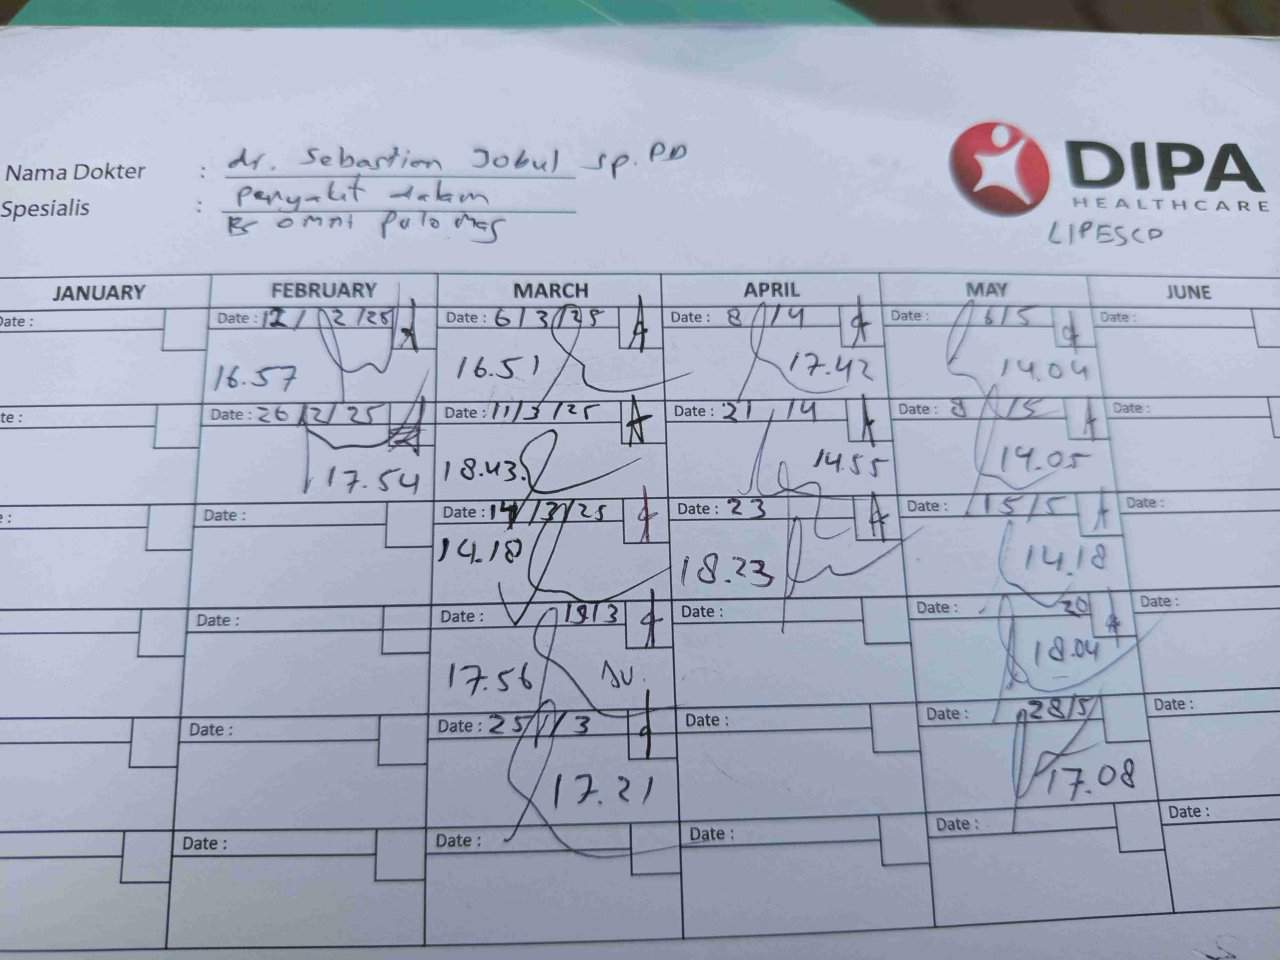 Nama Dokter : dr. Sebastian Jobul sp. PD
Spesialis : Penyakit dalam
RS omni Pulo mas
DIPA
HEALTHCARE
LIPESCO
JANUARY FEBRUARY MARCH APRIL MAY JUNE
Date : Date : 12/02/25 Date : 6/3/25 Date : 8/4 Date : 6/5 Date :
16.57 16.51 17.42 14.04
te : Date : 26/2/25 Date : 11/3/25 Date : 21/4 Date : 8/5 Date :
17.54 18.43 14.55 14.05
e : Date : Date : 14/3/25 Date : 23 Date : 15/5 Date :
14.18 18.23 14.18
Date : Date : 19/3 Date : Date : 20 Date :
17.56 18.04
Date : Date : 25/3 Date : Date : 28/5 Date :
17.21 17.08
Date : Date : Date : Date : Date :